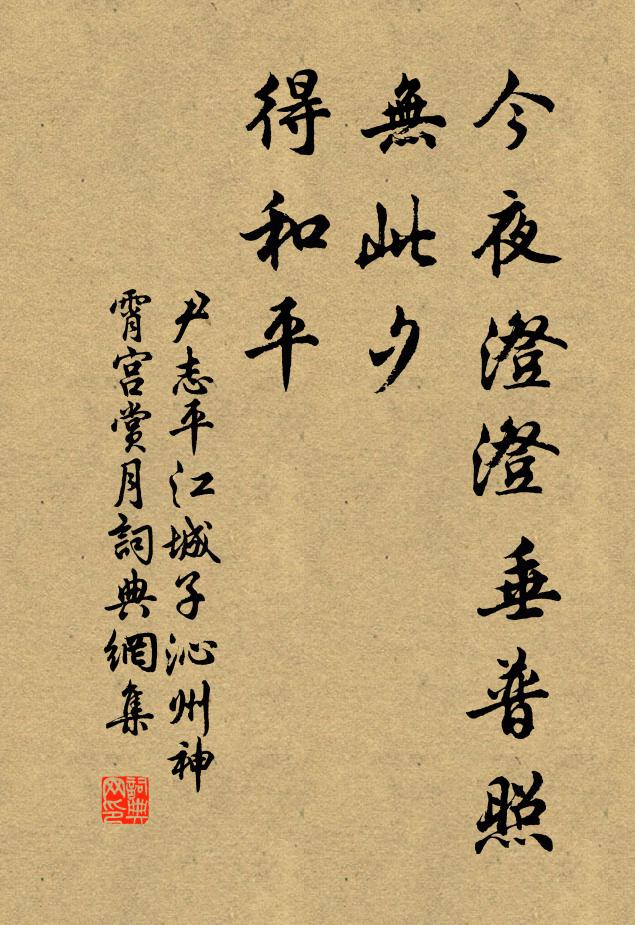 今夜澄澄垂普照
無此夕
得和平
尹志平江城子沁州神
霄宮賞月詞典網集
詞典
网印